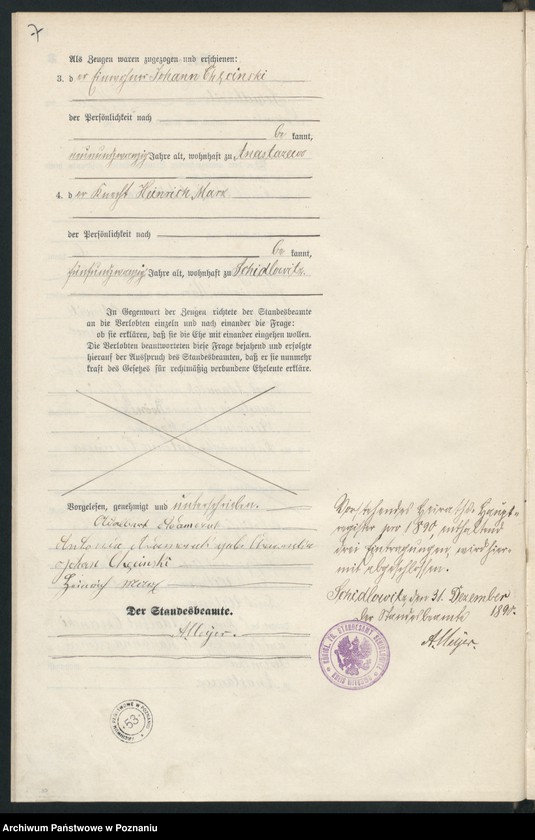 7
Als Zeugen waren zugezogen und erschienen:
3. der Einwohner Johann
der Persönlichkeit nach
be kannt,
neunundzwanzig Jahre alt, wohnhaft zu Anastazewo
4. der Knecht Heinrich Marx
der Persönlichkeit nach
be kannt,
fünfundzwanzig Jahre alt, wohnhaft zu Schidlowitz
In Gegenwart der Zeugen richtete der Standesbeamte
an die Verlobten einzeln und nach einander die Frage:
ob sie erklären, daß sie die Ehe mit einander eingehen wollen.
Die Verlobten beantworteten diese Frage bejahend und erfolgte
hierauf der Ausspruch des Standesbeamten, daß er sie nunmehr
kraft des Gesetzes für rechtmäßig verbundene Eheleute erkläre.
Vorgelesen, genehmigt und unterschrieben.
Antonia geb.
Heinrich Marx
Der Standesbeamte.
A Meyer.
Vorstehendes Heiraths-Haupt-
register pro 1890 enthaltend
drei Eintragungen, wird hier-
mit abgeschlossen.
Schidlowitz den 31. Dezember
1890.
Der Standesbeamte
A Meyer.
ARCHIWUM PAŃSTWOWE W POZNANIU
53
Archiwum Państwowe w Poznaniu